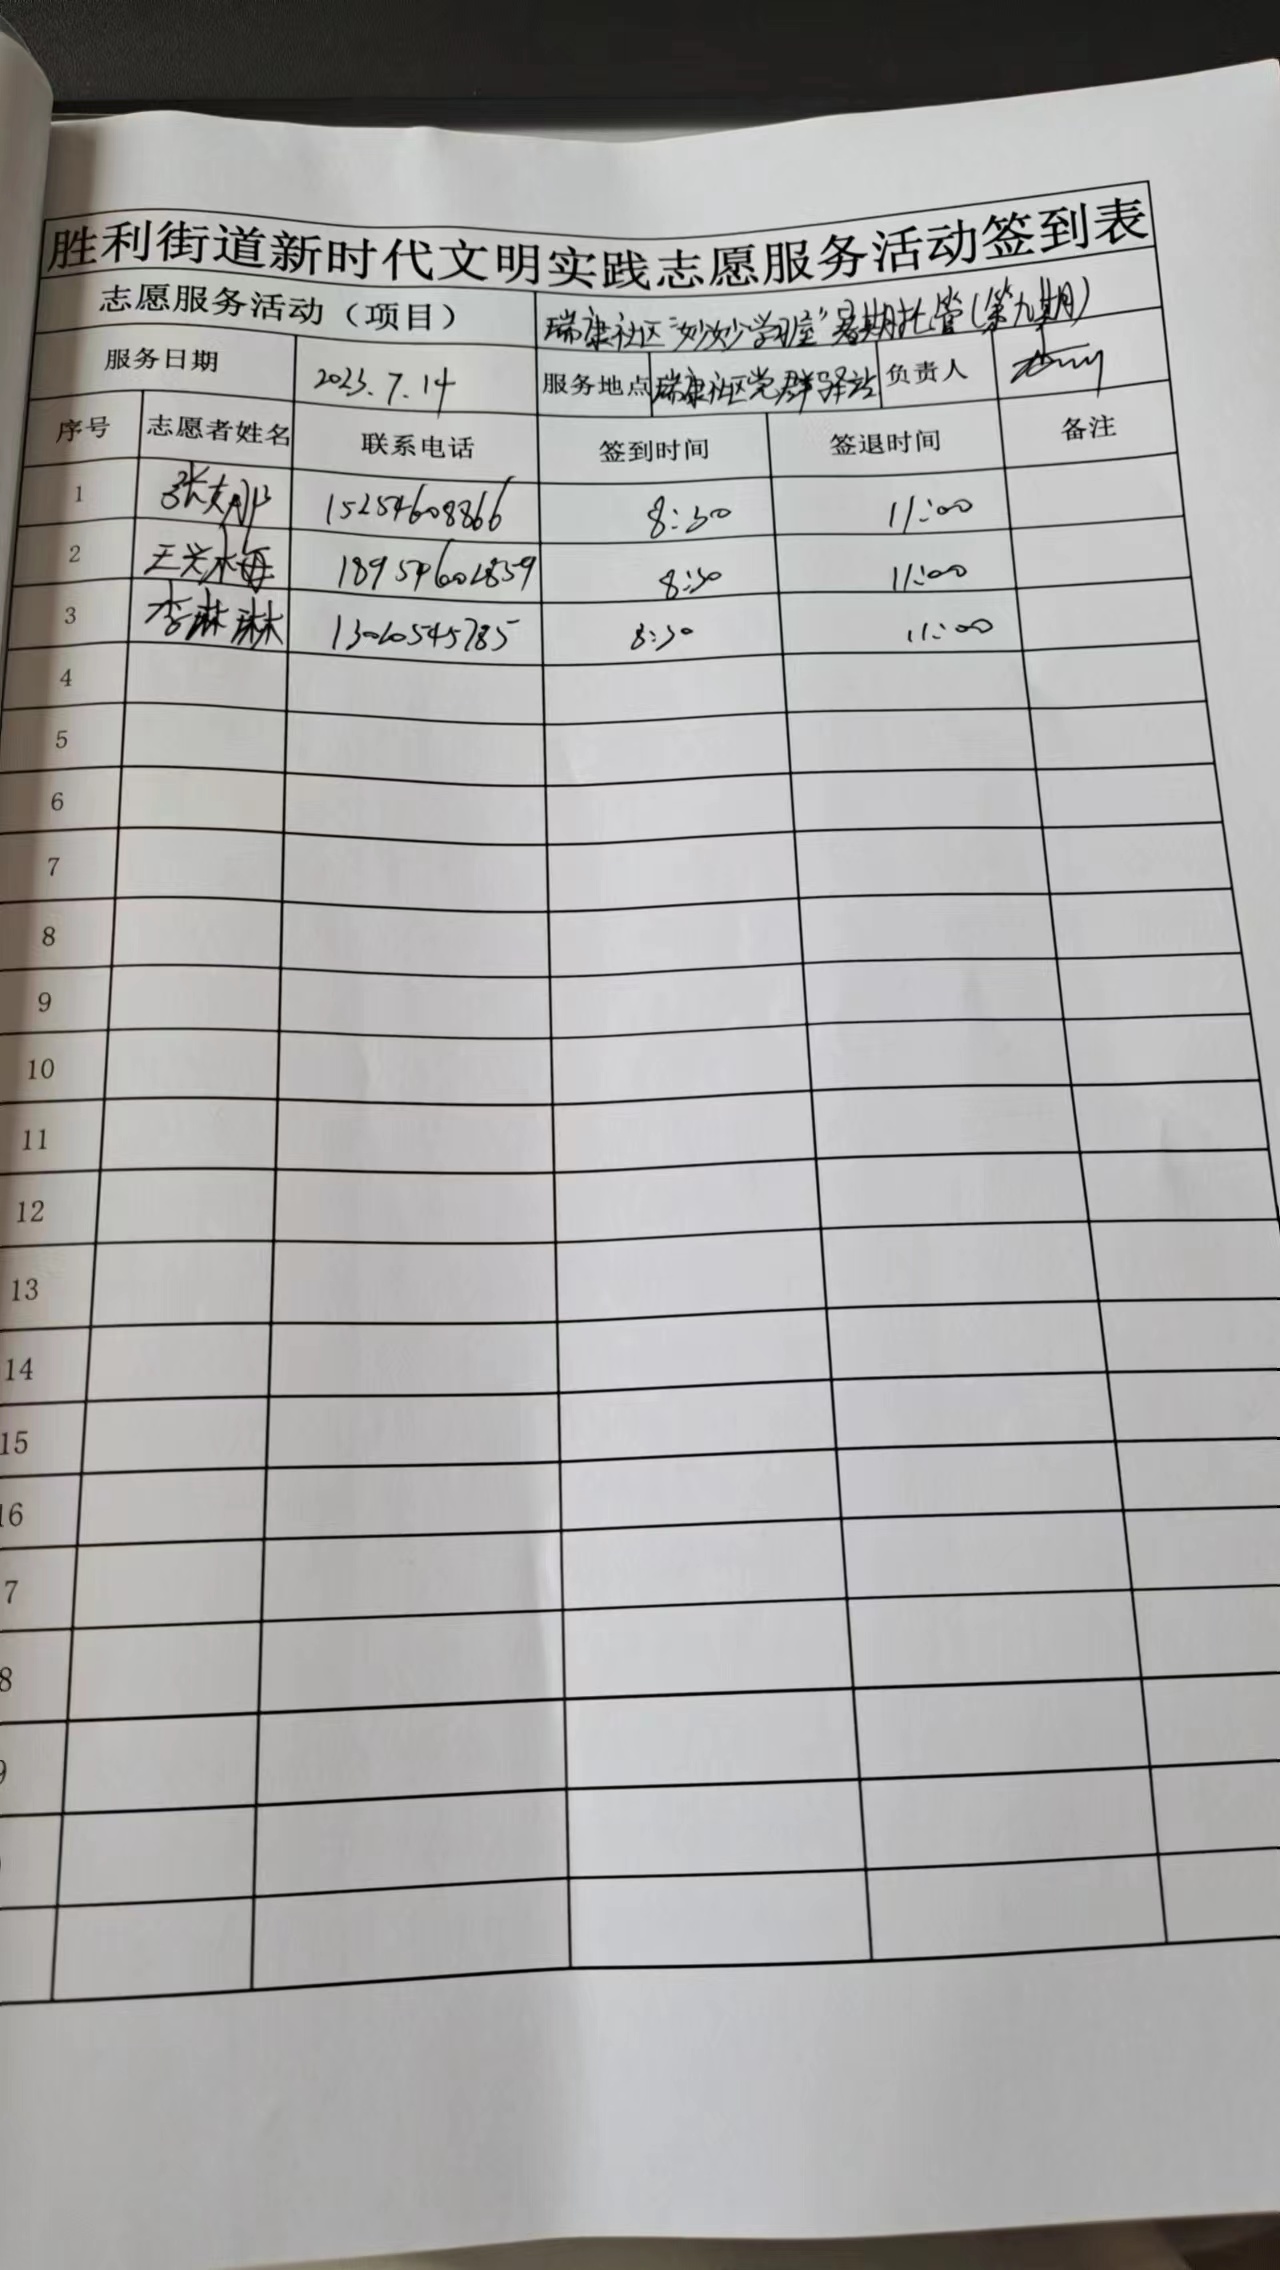 胜利街道新时代文明实践志愿服务活动签到表
志愿服务活动（项目） 瑞康社区“妙妙学习室”暑期托管（第九期）
服务日期 2023.7.14 服务地点 瑞康社区党群驿站 负责人
序号 志愿者姓名 联系电话 签到时间 签退时间 备注
1 15254608866 8:30 11:00
2 王兴梅 18954602859 8:30 11:00
3 李琳琳 13020545785 8:30 11:00
4
5
6
7
8
9
10
11
12
13
14
15
16
7
8
9